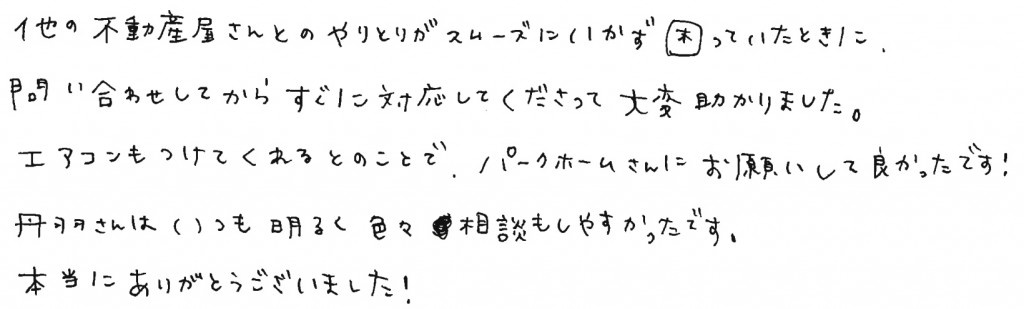 他の不動産屋さんとのやりとりがスムーズにいかず困っていたときに、
問い合わせしてからすぐに対応してくださって大変助かりました。
エアコンもつけてくれるとのことで、パークホームさんにお願いして良かったです!
丹羽さんはいつも明るく色々相談もしやすかったです。
本当にありがとうございました!